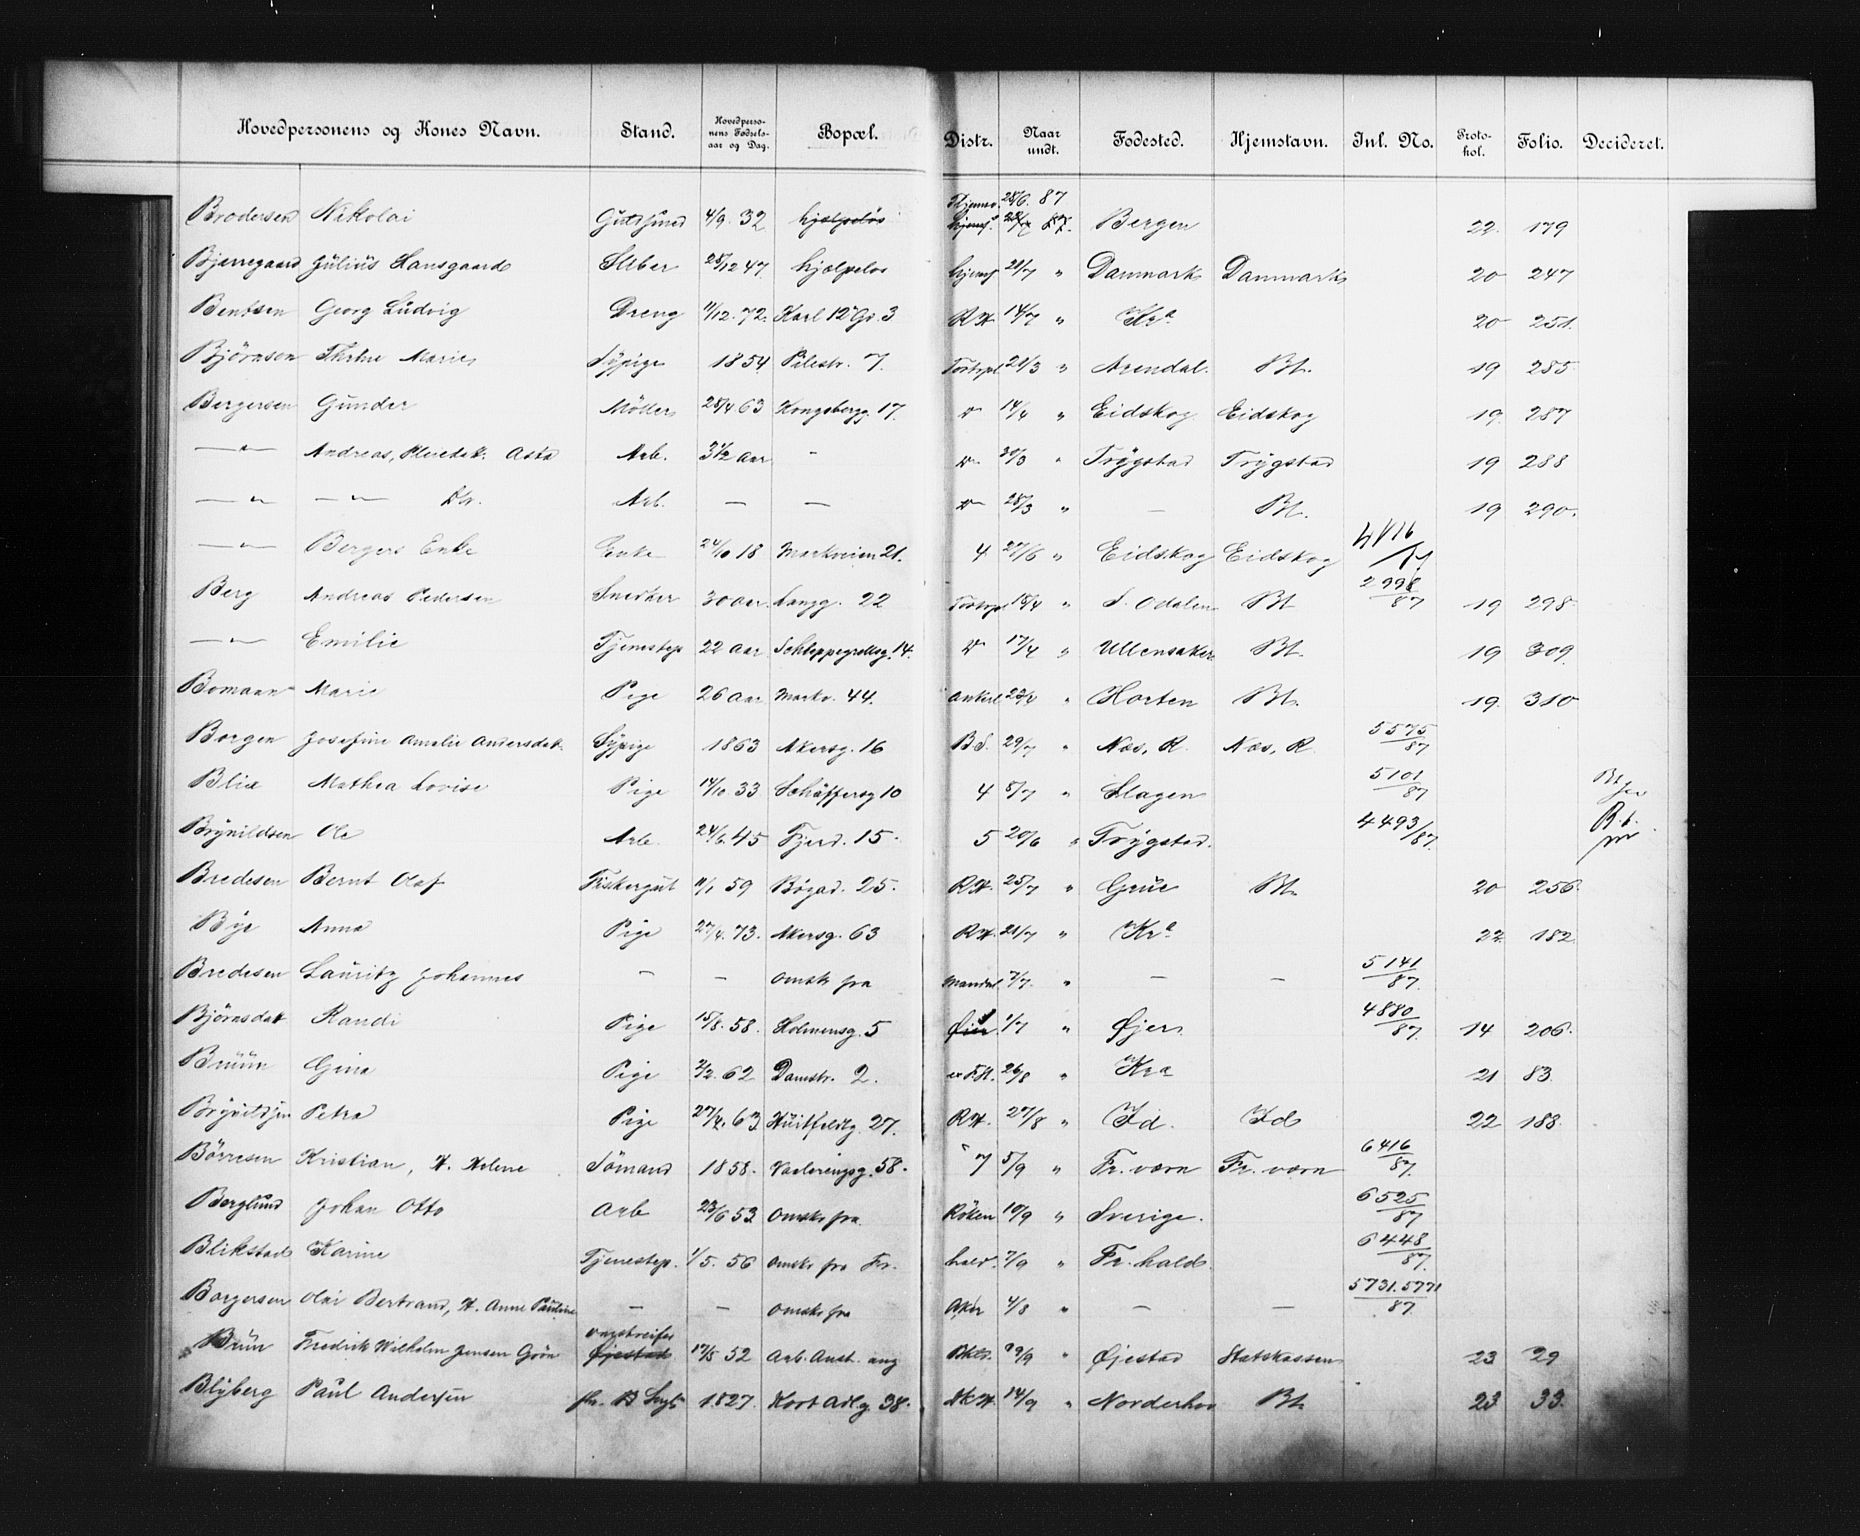 Hovedpersonens og Kones Navn. Stand. Hovedpersonens Fødselsaar og Dag. Bopæl. Distr. Naar undt. Fødested. Hjemstavn. Inl. No. Protokol. Folio. Decideret.
Brodersen Nikolai 4/9. 32 hjælpeløs 28/6. 87 Bergen 22. 179
Bjerregaard Julius Hansgaard 28/12 47 hjælpeløs 21/7 " Danmark Danmark 20 247
Bentsen Georg Ludvig Dreng 11/12. 72. Karl 12 Gd. 3 RH. 14/7 " Kra. 20 251.
Björnson Thrine Marie Sypige 1854 Pilestr. 7. 21/3 " Arendal. Bt. 19 285
Bergersen Gunder Möller 28/4 63 Kongsbergg. 17. " 14/4 " Eidskog Eidskog 19. 287
— " — Andreas, Asta Arb. 31/2 aar - " 20/3 " Trygstad Trygstad 19 288
— " — — " — Do. Arb. — — " 28/3 " — Bt. 19 290.
— " — Bergers Enke Enke 24/10 18 Markveien 21. 4 27/6 " Eidskog Eidskog 4816/87
Berg Andreas Pedersen Snedker 30 aar. Langg. 22 18/4 " S. Odalen Bt 2998/87 19 298.
— " — Emilie Tjenestep 22 aar Schleppegrellsg. 14. " 17/4 " Ullensaker Bt. 19 309.
Bomann Marie Pige 26 aar Markv. 44. Ankerl 23/4 " Horten Bt. 19. 310
Borgen Josefine Amalie Andersdat. Sypige 1863 Akersg. 16 B.S. 29/7 " Næs, R. Næs, R. 5575/87
Blix Mathea Lovise Pige 14/10 33 Schäffersg 10 4 5/7 " Slagen 5101/87 Bt
Brynildsen Ole Arb. 24/6. 45 Fjerd. 15. 5 20/6 " Trygstad. 4493/87. B.t.
Bredesen Bernt Olaf Fiskergut 11/1 59 Bögad. 25. RH. 25/7 " Grue Bt. 20 256.
Bye Anna Pige 27/4. 73. Akersg. 63 RH. 21/7 " Kra. 22. 182
Bredesen Lauritz Johannes — — omsk fra Mandal. 7/7. " — — 5141/87.
Björnsdat Randi Pige 15/8. 58. Holmensg. 5 1/7 " Øjer. 4880/87. 14 206.
Bruun Gina Pige 2/2. 62 Damstr. 2. 26/8 " Kra 21 83.
Brynildsen Petra Pige 27/4. 63 Huitfeldtg. 27. RH. 27/8 " Id. Id 22 183.
Börresen Kristian, H. Helene Sömand 1858. Vaalerengsg. 58. 7 5/9 " Fr. værn Fr. værn 6416/87.
Berglund Johan Otto Arb 23/6 53 Omsk. fra Röken 10/9 " Sverige. 6525/87
Blikstad Karine Tjenestep. 1/5. 56 omsk. fra Fr. hald. 7/9 " Fr. hald. 6448/87.
Borgersen Olai Bertrand, H. Anne Pauline — — omsk. fra Aker 4/8 " — — 5731. 5771/87.
Bruun Fredrik Wilhelm Jensen Grön omstreifer Øjestad 17/5 52 Arb. Anst. ang 29/9 " Øjestad Statskassen 23. 29
Blyberg Paul Andersen 1827. Kort Adlg. 38. 14/9 " Norderhov Bt. 23. 33.